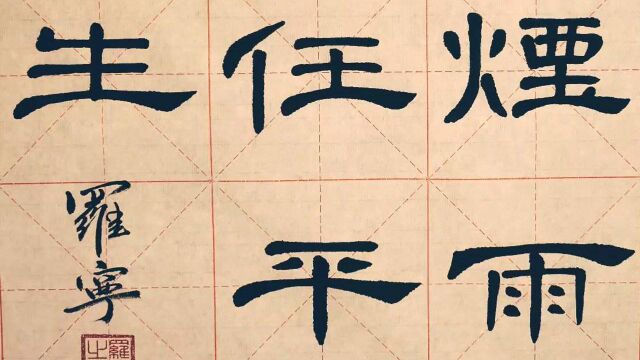 煙雨
任平
生
羅寧